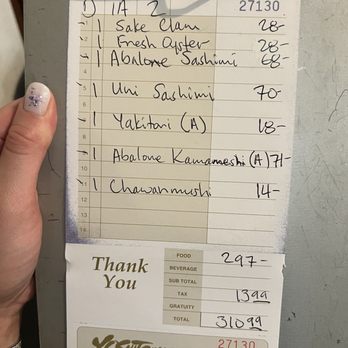 1A 2 27130
1 Sake Clam 28-
1 Fresh Oyster 28-
1 Abalone Sashimi 68-
1 Uni Sashimi 70-
1 Yakitori (A) 18-
1 Abalone Kamameshi (A) 71-
1 Chawanmushi 14-
Thank
You
FOOD 297-
BEVERAGE
SUB TOTAL
TAX 13 99
GRATUITY
TOTAL 310 99
27130